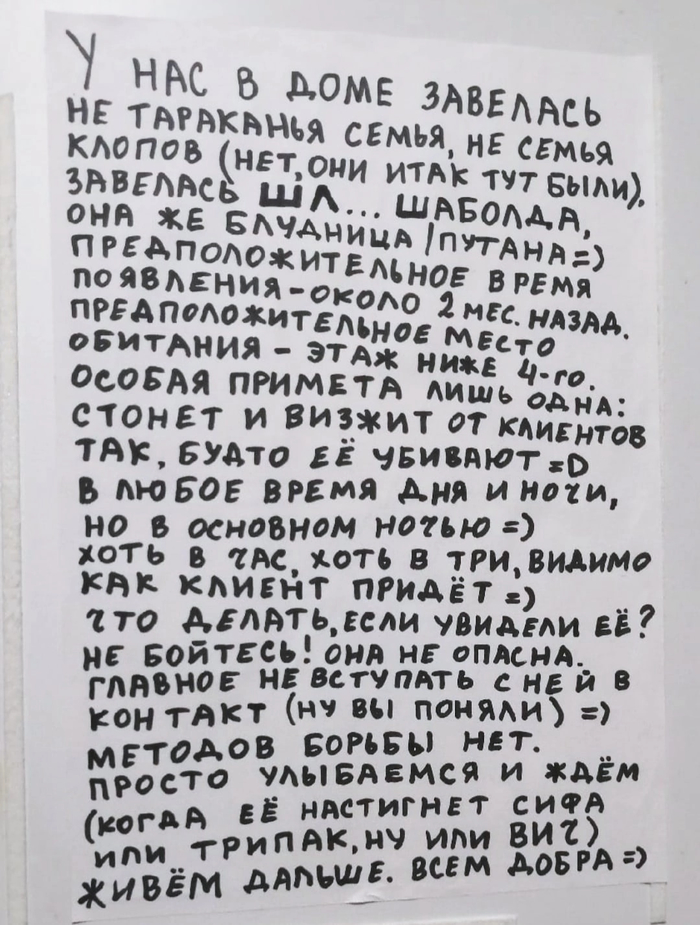 У НАС В ДОМЕ ЗАВЕЛАСЬ
НЕ ТАРАКАНЬЯ СЕМЬЯ, НЕ СЕМЬЯ
КЛОПОВ (НЕТ, ОНИ ИТАК ТУТ БЫЛИ).
ЗАВЕЛАСЬ ШЛ... ШАБОЛДА,
ОНА ЖЕ БЛУДНИЦА/ПУТАНА=)
ПРЕДПОЛОЖИТЕЛЬНОЕ ВРЕМЯ
ПОЯВЛЕНИЯ-ОКОЛО 2 МЕС. НАЗАД.
ПРЕДПОЛОЖИТЕЛЬНОЕ МЕСТО
ОБИТАНИЯ - ЭТАЖ НИЖЕ 4-ГО.
ОСОБАЯ ПРИМЕТА ЛИШЬ ОДНА:
СТОНЕТ И ВИЗЖИТ ОТ КЛИЕНТОВ
ТАК, БУДТО ЕЁ УБИВАЮТ =D
В ЛЮБОЕ ВРЕМЯ ДНЯ И НОЧИ,
НО В ОСНОВНОМ НОЧЬЮ =)
ХОТЬ В ЧАС, ХОТЬ В ТРИ, ВИДИМО
КАК КЛИЕНТ ПРИДЁТ =)
ЧТО ДЕЛАТЬ, ЕСЛИ УВИДЕЛИ ЕЁ?
НЕ БОЙТЕСЬ! ОНА НЕ ОПАСНА.
ГЛАВНОЕ НЕ ВСТУПАТЬ С НЕЙ В
КОНТАКТ (НУ ВЫ ПОНЯЛИ) =)
МЕТОДОВ БОРЬБЫ НЕТ.
ПРОСТО УЛЫБАЕМСЯ И ЖДЁМ
(КОГДА ЕЁ НАСТИГНЕТ СИФА
ИЛИ ТРИПАК, НУ ИЛИ ВИЧ)
ЖИВЁМ ДАЛЬШЕ. ВСЕМ ДОБРА =)